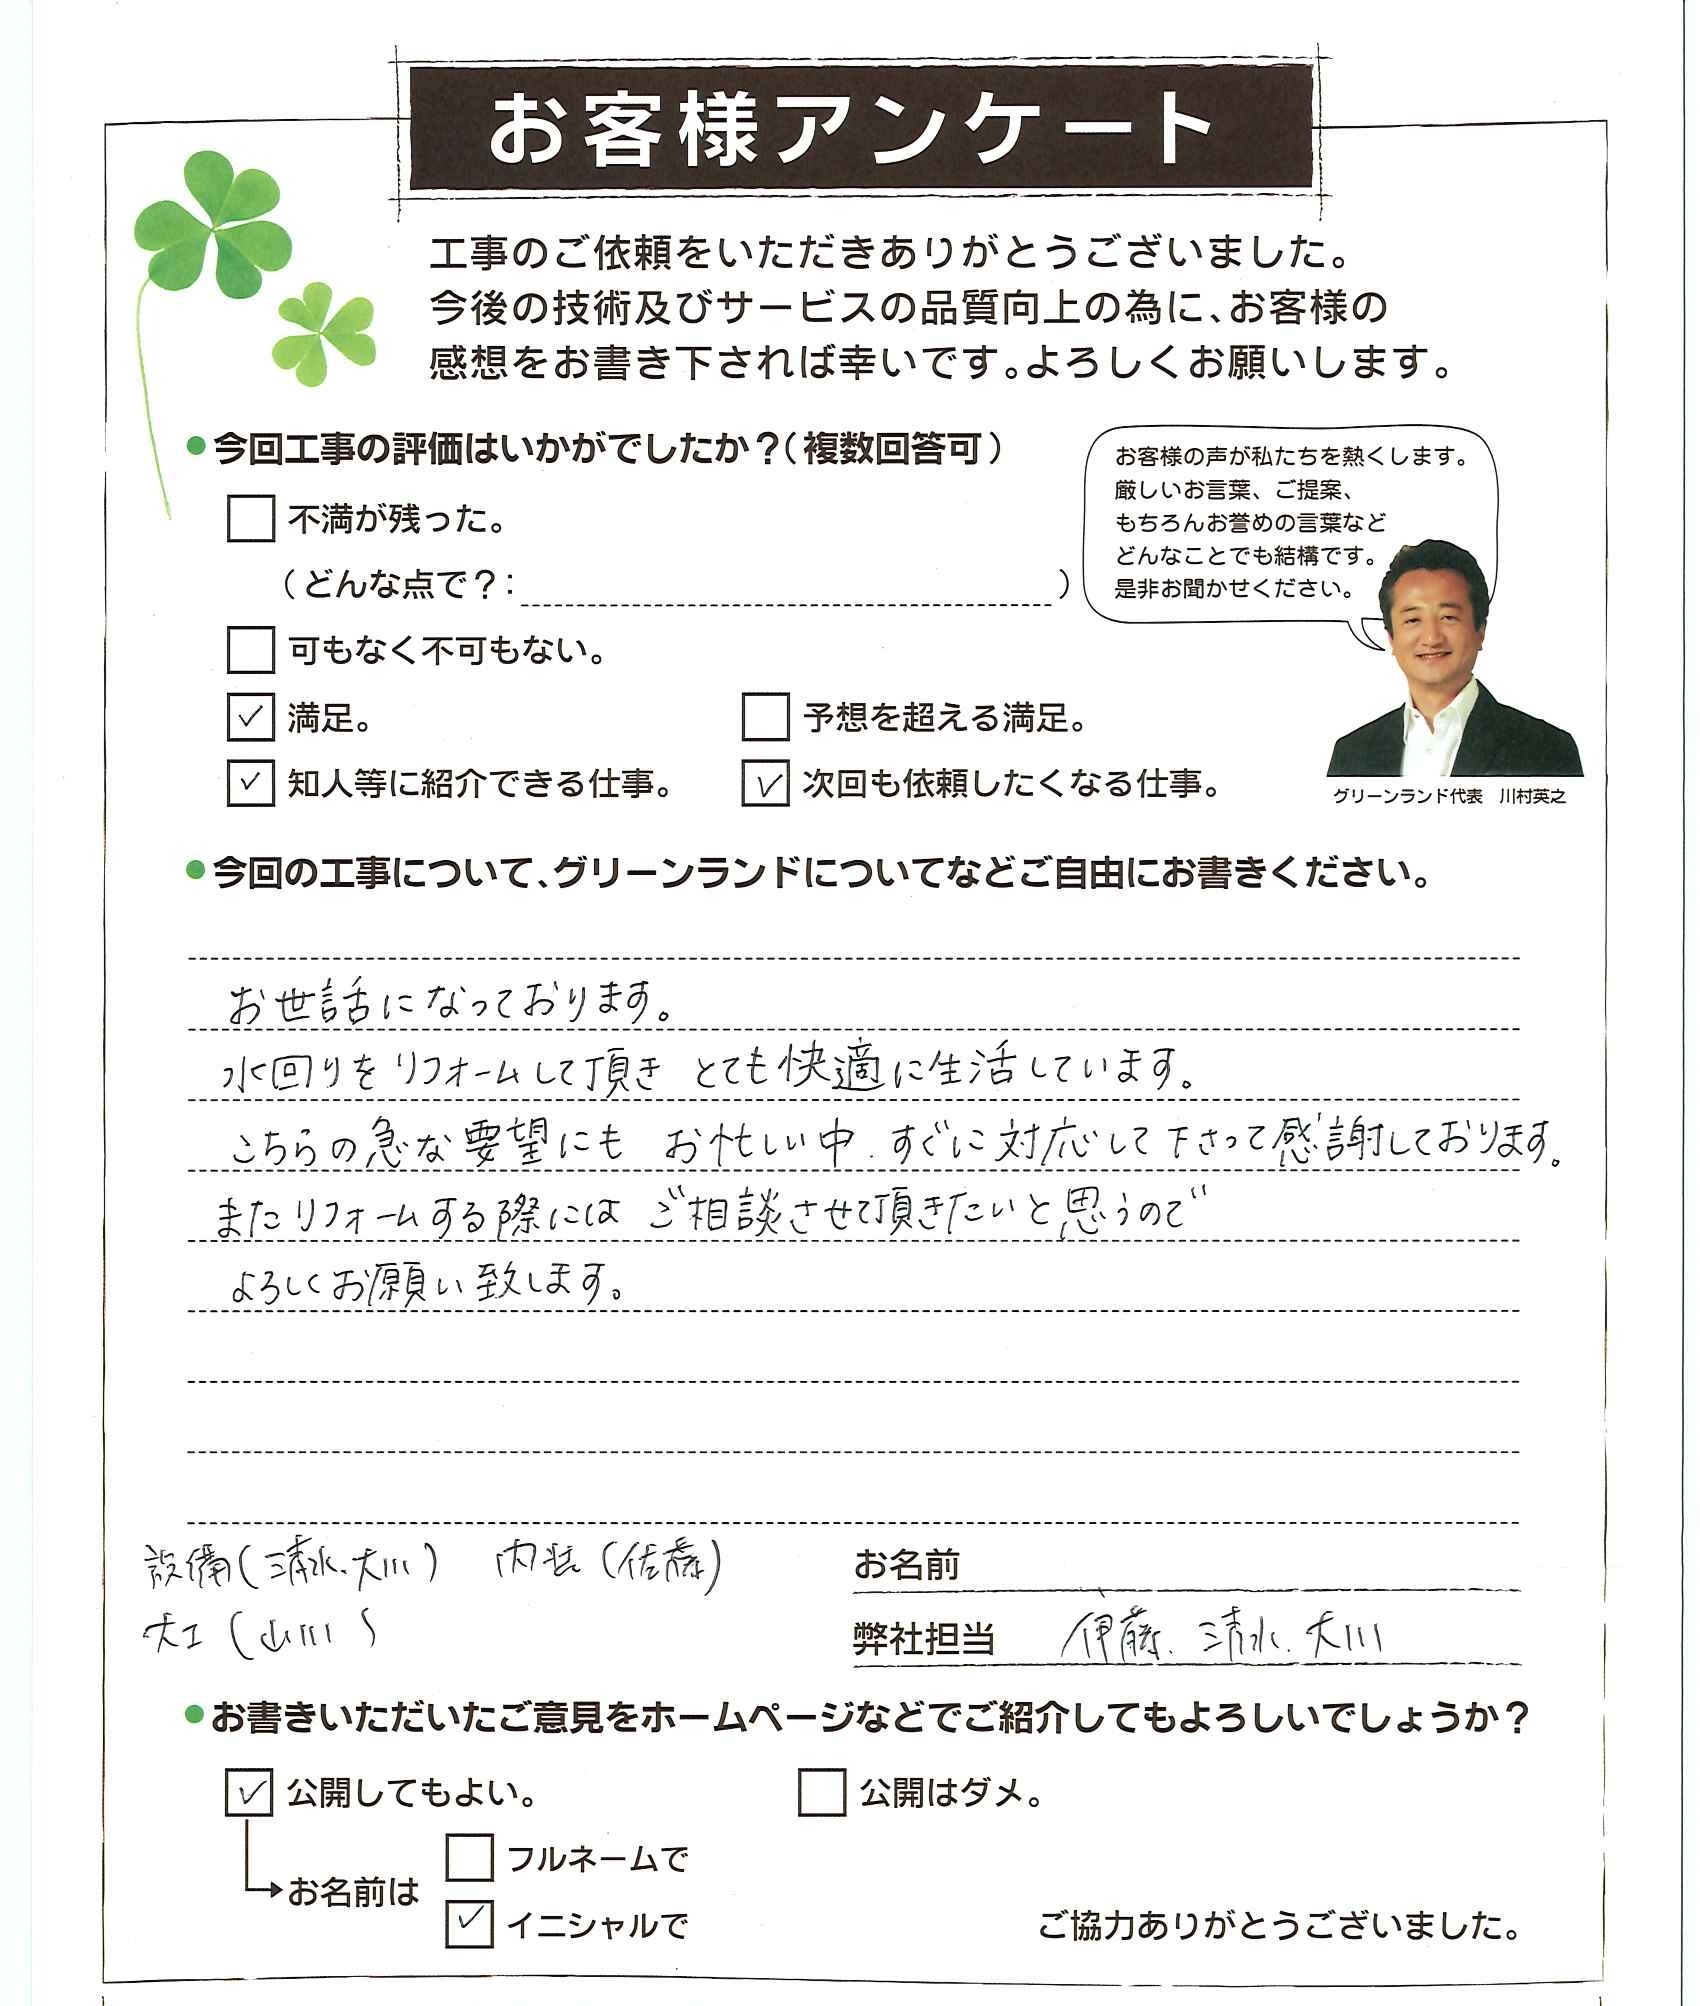 お客様アンケート
工事のご依頼をいただきありがとうございました。
今後の技術及びサービスの品質向上の為に、お客様の
感想をお書き下されば幸いです。よろしくお願いします。
●今回工事の評価はいかがでしたか？(複数回答可)
不満が残った。
(どんな点で？: )
可もなく不可もない。
✓ 満足。
予想を超える満足。
✓ 知人等に紹介できる仕事。
✓ 次回も依頼したくなる仕事。
お客様の声が私たちを熱くします。
厳しいお言葉、ご提案、
もちろんお誉めの言葉など
どんなことでも結構です。
是非お聞かせください。
グリーンランド代表　川村英之
●今回の工事について、グリーンランドについてなどご自由にお書きください。
お世話になっております。
水回りをリフォームして頂き とても快適に生活しています。
こちらの急な要望にも お忙しい中、すぐに対応して下さって感謝しております。
またリフォームする際には ご相談させて頂きたいと思うので
よろしくお願い致します。
設備(清水、大川) 内装(佐藤)
大工(山川)
お名前
弊社担当 伊藤、清水、大川
●お書きいただいたご意見をホームページなどでご紹介してもよろしいでしょうか？
✓ 公開してもよい。
公開はダメ。
お名前は
フルネームで
✓ イニシャルで
ご協力ありがとうございました。